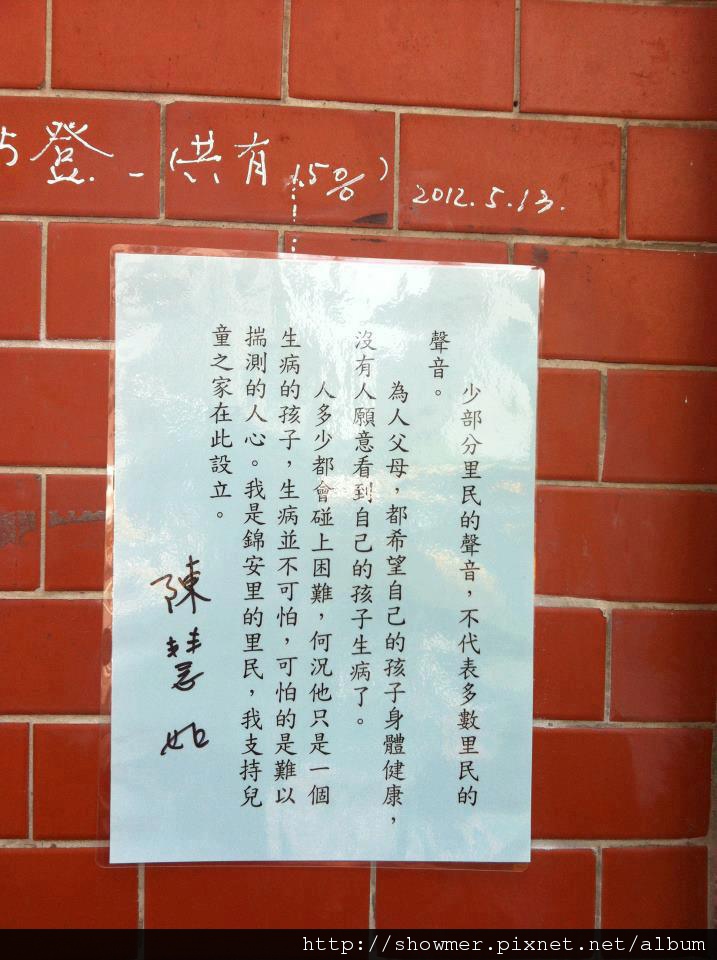 5登.-(共有15%)
2012.5.13.
少部分里民的聲音，不代表多數里民的
聲音。
為人父母，都希望自己的孩子身體健康，
沒有人願意看到自己的孩子生病了。
人多少都會碰上困難，何況他只是一個
生病的孩子，生病並不可怕，可怕的是難以
揣測的人心。我是錦安里的里民，我支持兒
童之家在此設立。
陳慧如
http://showmer.pixnet.net/album